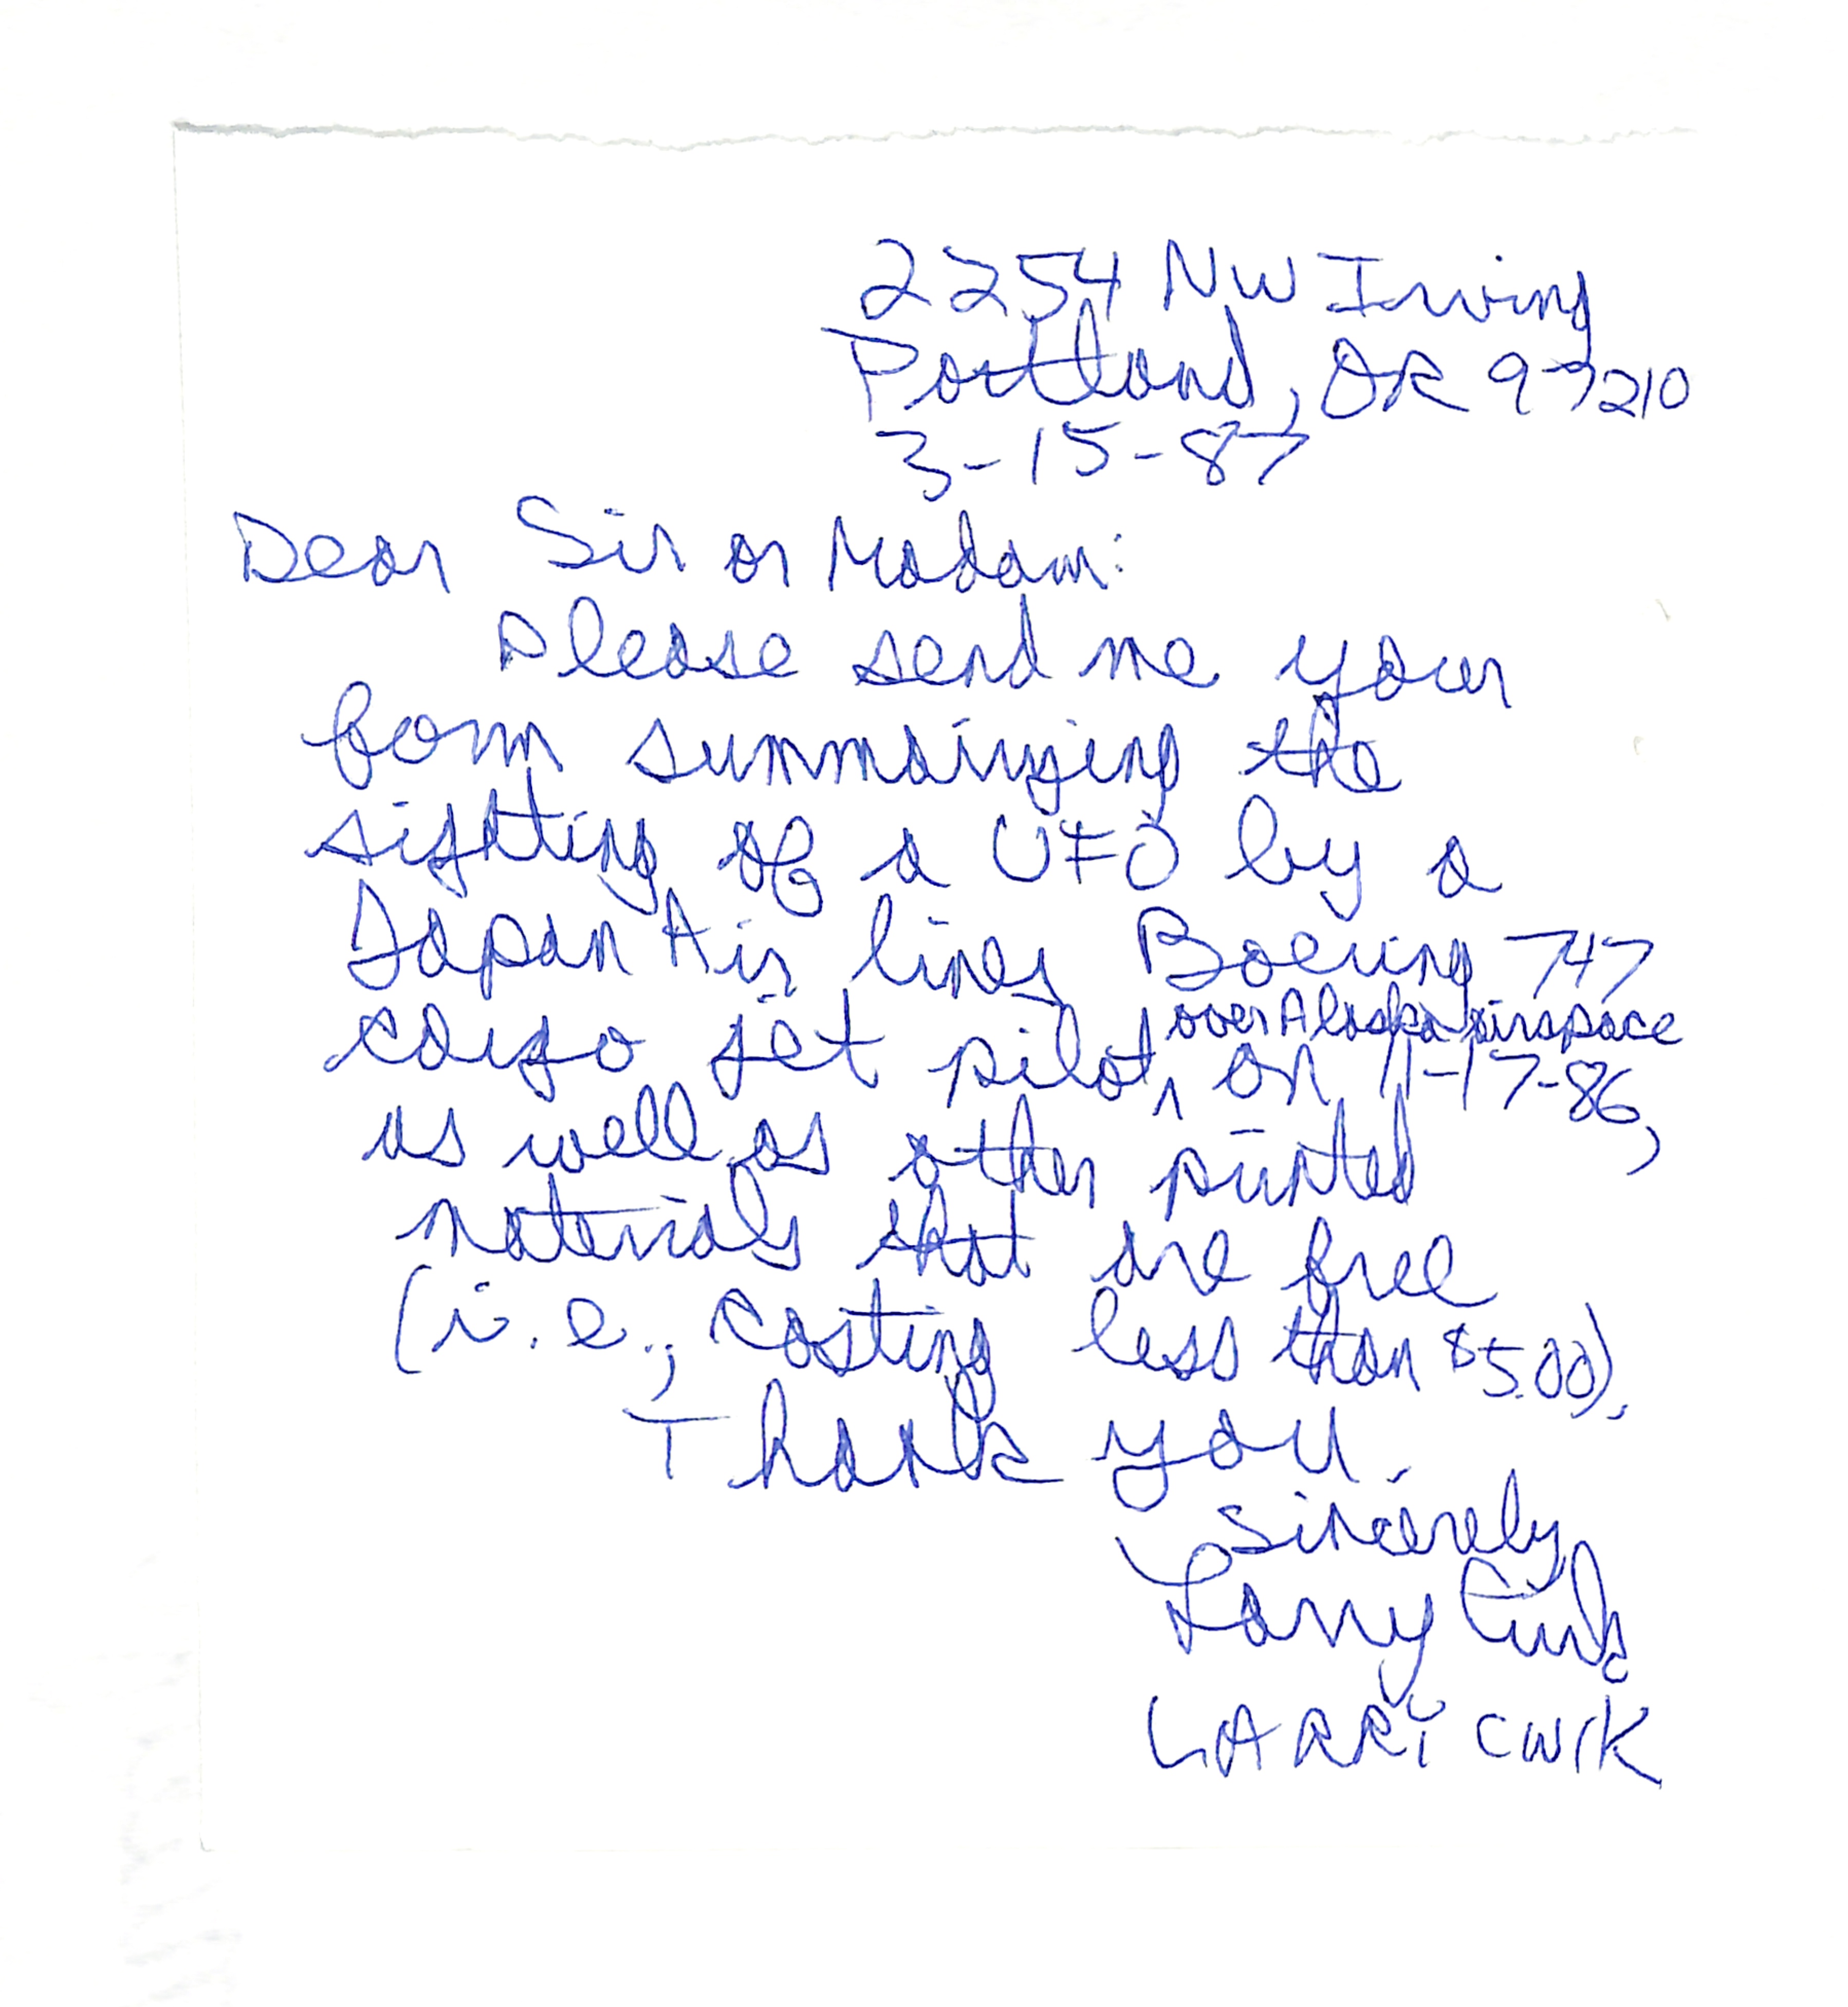 2254 NW Irving
Portland, OR 97210
3-15-87
Dear Sir or Madam:
Please send me your
form summarizing the
sighting of a UFO by a
Japan Air lines Boeing 747
cargo jet pilot, over Alaska airspace on 11-17-86,
as well as other printed
materials that are free
(i.e., costing less than $5.00).
Thank you.
Sincerely,
Larry Cwik
LARRY CWIK